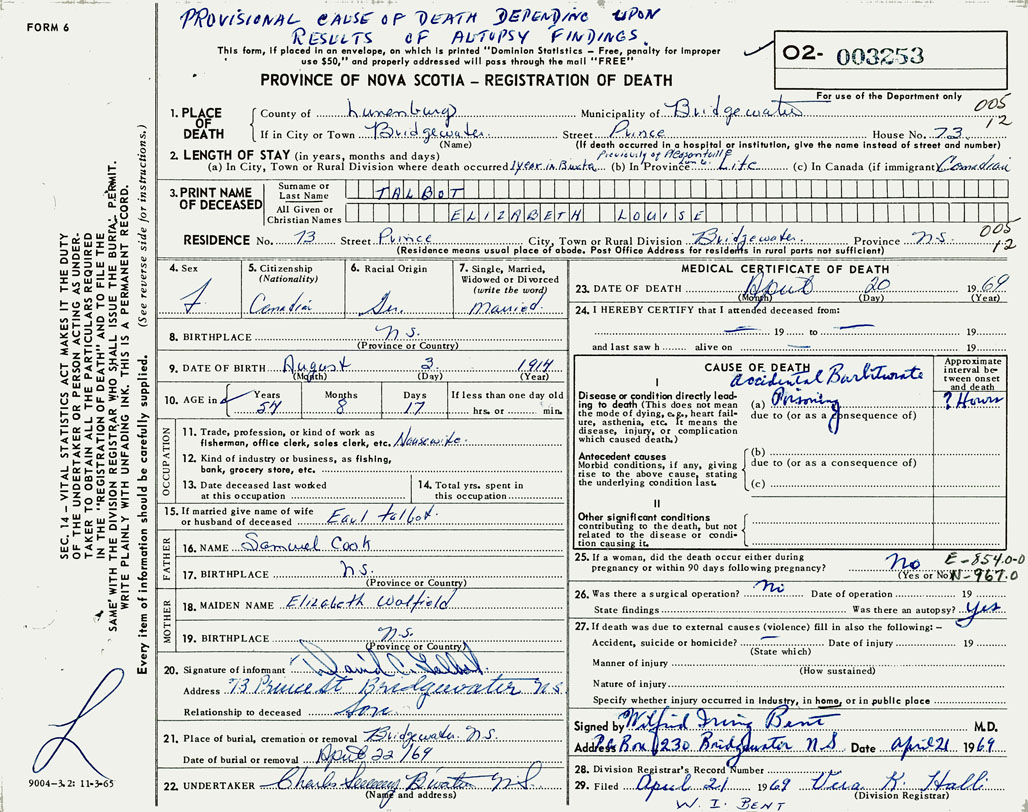 PROVISIONAL CAUSE OF DEATH DEPENDING UPON
RESULTS OF AUTOPSY FINDINGS.
FORM 6
This form, if placed in an envelope, on which is printed "Dominion Statistics – Free, penalty for improper
use $50," and properly addressed will pass through the mail "FREE"
PROVINCE OF NOVA SCOTIA – REGISTRATION OF DEATH
02- 003253
For use of the Department only
005
12
1. PLACE OF DEATH
County of Lunenburg Municipality of Bridgewater
If in City or Town Bridgewater Street Prince House No. 73
(Name) (If death occurred in a hospital or institution, give the name instead of street and number)
2. LENGTH OF STAY (in years, months and days)
Previously of
(a) In City, Town or Rural Division where death occurred 1 year in (b) In Province Life (c) In Canada (if immigrant) Canadian
3. PRINT NAME OF DECEASED
Surname or Last Name TALBOT
All Given or Christian Names ELIZABETH LOUISE
RESIDENCE No. 73 Street Prince City, Town or Rural Division Bridgewater Province N.S.
005
12
(Residence means usual place of abode. Post Office Address for residents in rural parts not sufficient)
4. Sex
f.
5. Citizenship (Nationality)
Canadian
6. Racial Origin
Ger.
7. Single, Married, Widowed or Divorced (write the word)
Married.
8. BIRTHPLACE N.S.
(Province or Country)
9. DATE OF BIRTH August 3 1914
(Month) (Day) (Year)
10. AGE in Years Months Days If less than one day old
54 8 17 hrs. or min.
OCCUPATION
11. Trade, profession, or kind of work as
fisherman, office clerk, sales clerk, etc. Housewife.
12. Kind of industry or business, as fishing,
bank, grocery store, etc.
13. Date deceased last worked
at this occupation
14. Total yrs. spent in
this occupation
15. If married give name of wife
or husband of deceased Earl Talbot.
FATHER
16. NAME Samuel Cook
17. BIRTHPLACE N.S.
(Province or Country)
MOTHER
18. MAIDEN NAME Elizabeth Walfield
19. BIRTHPLACE N.S.
(Province or Country)
20. Signature of informant David C. Talbot
Address 73 Prince St Bridgewater N.S
Relationship to deceased Son.
21. Place of burial, cremation or removal Bridgewater N.S.
Date of burial or removal April 22/69
22. UNDERTAKER Charles B'water N.S.
(Name and address)
MEDICAL CERTIFICATE OF DEATH
23. DATE OF DEATH April 20 1969
(Month) (Day) (Year)
24. I HEREBY CERTIFY that I attended deceased from:
— 19 to — 19
and last saw h alive on — 19
CAUSE OF DEATH
Approximate interval between onset and death
I
Accidental Barbiturate
Disease or condition directly leading to death (This does not mean the mode of dying, e.g., heart failure, asthenia, etc. It means the disease, injury, or complication which caused death.)
(a) Poisoning ? Hours
due to (or as a consequence of)
Antecedent causes
Morbid conditions, if any, giving rise to the above cause, stating the underlying condition last.
(b)
due to (or as a consequence of)
(c)
II
Other significant conditions
contributing to the death, but not related to the disease or condition causing it.
25. If a woman, did the death occur either during
pregnancy or within 90 days following pregnancy? No
(Yes or No)
E-854.0-0
N-967.0
26. Was there a surgical operation? No Date of operation 19
State findings Was there an autopsy? Yes
27. If death was due to external causes (violence) fill in also the following: –
Accident, suicide or homicide? — Date of injury 19
(State which)
Manner of injury
(How sustained)
Nature of injury
Specify whether injury occurred in industry, in home, or in public place
Signed by Wilfrid Irving Bent M.D.
Address P.O. Box 1230 Bridgewater N S Date April 21 1969
28. Division Registrar's Record Number
29. Filed April 21 1969 Vera K. Hall
(Division Registrar)
W. I. BENT
SEC. 14 – VITAL STATISTICS ACT MAKES IT THE DUTY
OF THE UNDERTAKER OR PERSON ACTING AS UNDER-
TAKER TO OBTAIN ALL THE PARTICULARS REQUIRED
IN THE "REGISTRATION OF DEATH" AND TO FILE THE
SAME WITH THE DIVISION REGISTRAR WHO SHALL ISSUE THE BURIAL PERMIT.
WRITE PLAINLY WITH UNFADING INK. THIS IS A PERMANENT RECORD.
Every item of information should be carefully supplied. (See reverse side for instructions.)
9004-3.2: 11-3-65